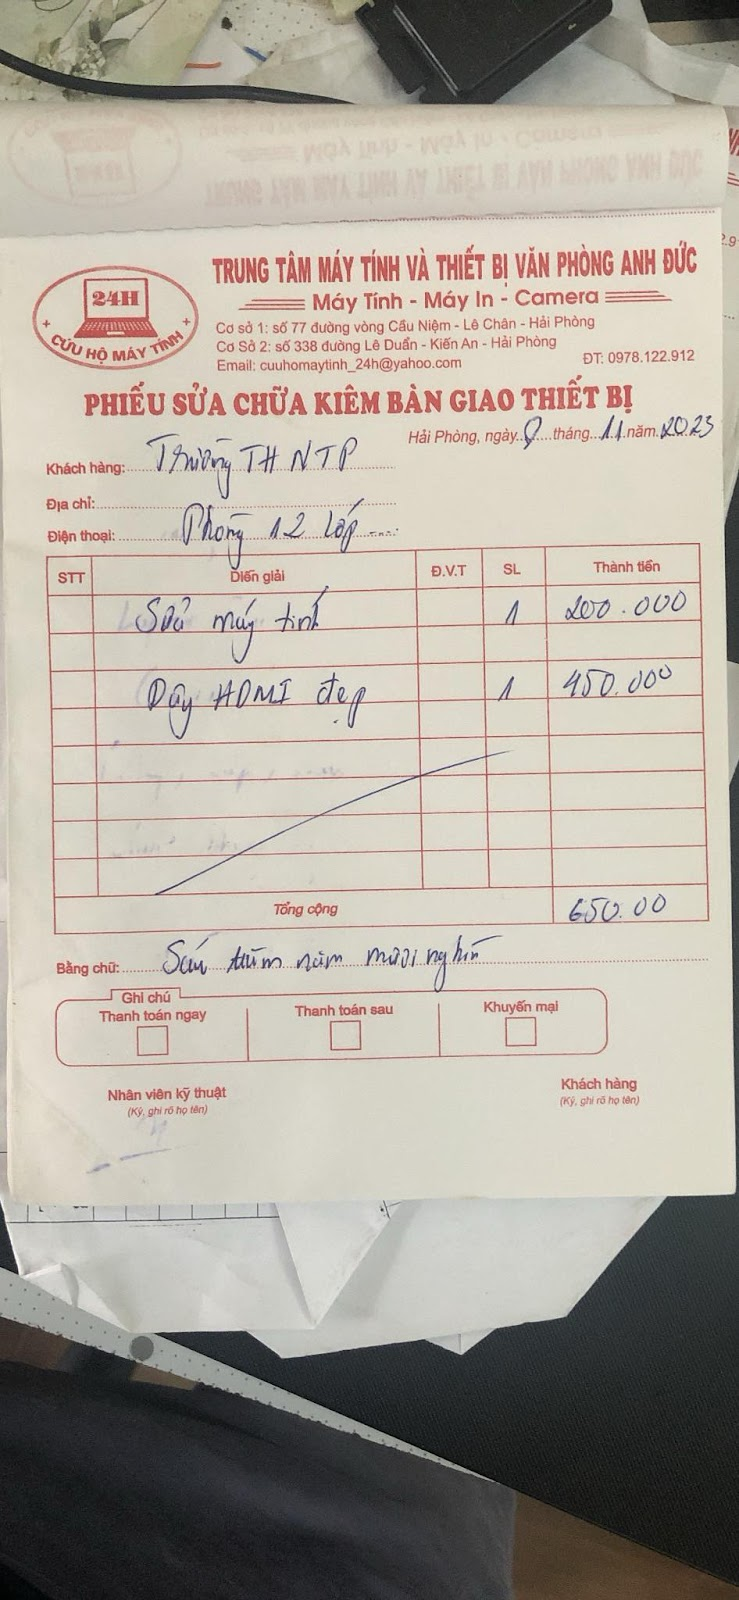 TRUNG TÂM MÁY TÍNH VÀ THIẾT BỊ VĂN PHÒNG ANH ĐỨC
24H
CỨU HỘ MÁY TÍNH
Máy Tính - Máy In - Camera
Cơ sở 1: số 77 đường vòng Cầu Niệm - Lê Chân - Hải Phòng
Cơ Sở 2: số 338 đường Lê Duẩn - Kiến An - Hải Phòng
Email: cuuhomaytinh_24h@yahoo.com ĐT: 0978.122.912
PHIẾU SỬA CHỮA KIÊM BÀN GIAO THIẾT BỊ
Hải Phòng, ngày 8 tháng 11 năm 2023
Khách hàng: Trường TH NTP
Địa chỉ:
Điện thoại: Phòng 12 lớp
STT Diễn giải Đ.V.T SL Thành tiền
Sửa máy tính 1 200.000
Dây HDMI đẹp 1 450.000
Tổng cộng 650.00
Bằng chữ: Sáu trăm năm mươi nghìn
Ghi chú
Thanh toán ngay Thanh toán sau Khuyến mại
Nhân viên kỹ thuật Khách hàng
(Ký, ghi rõ họ tên) (Ký, ghi rõ họ tên)